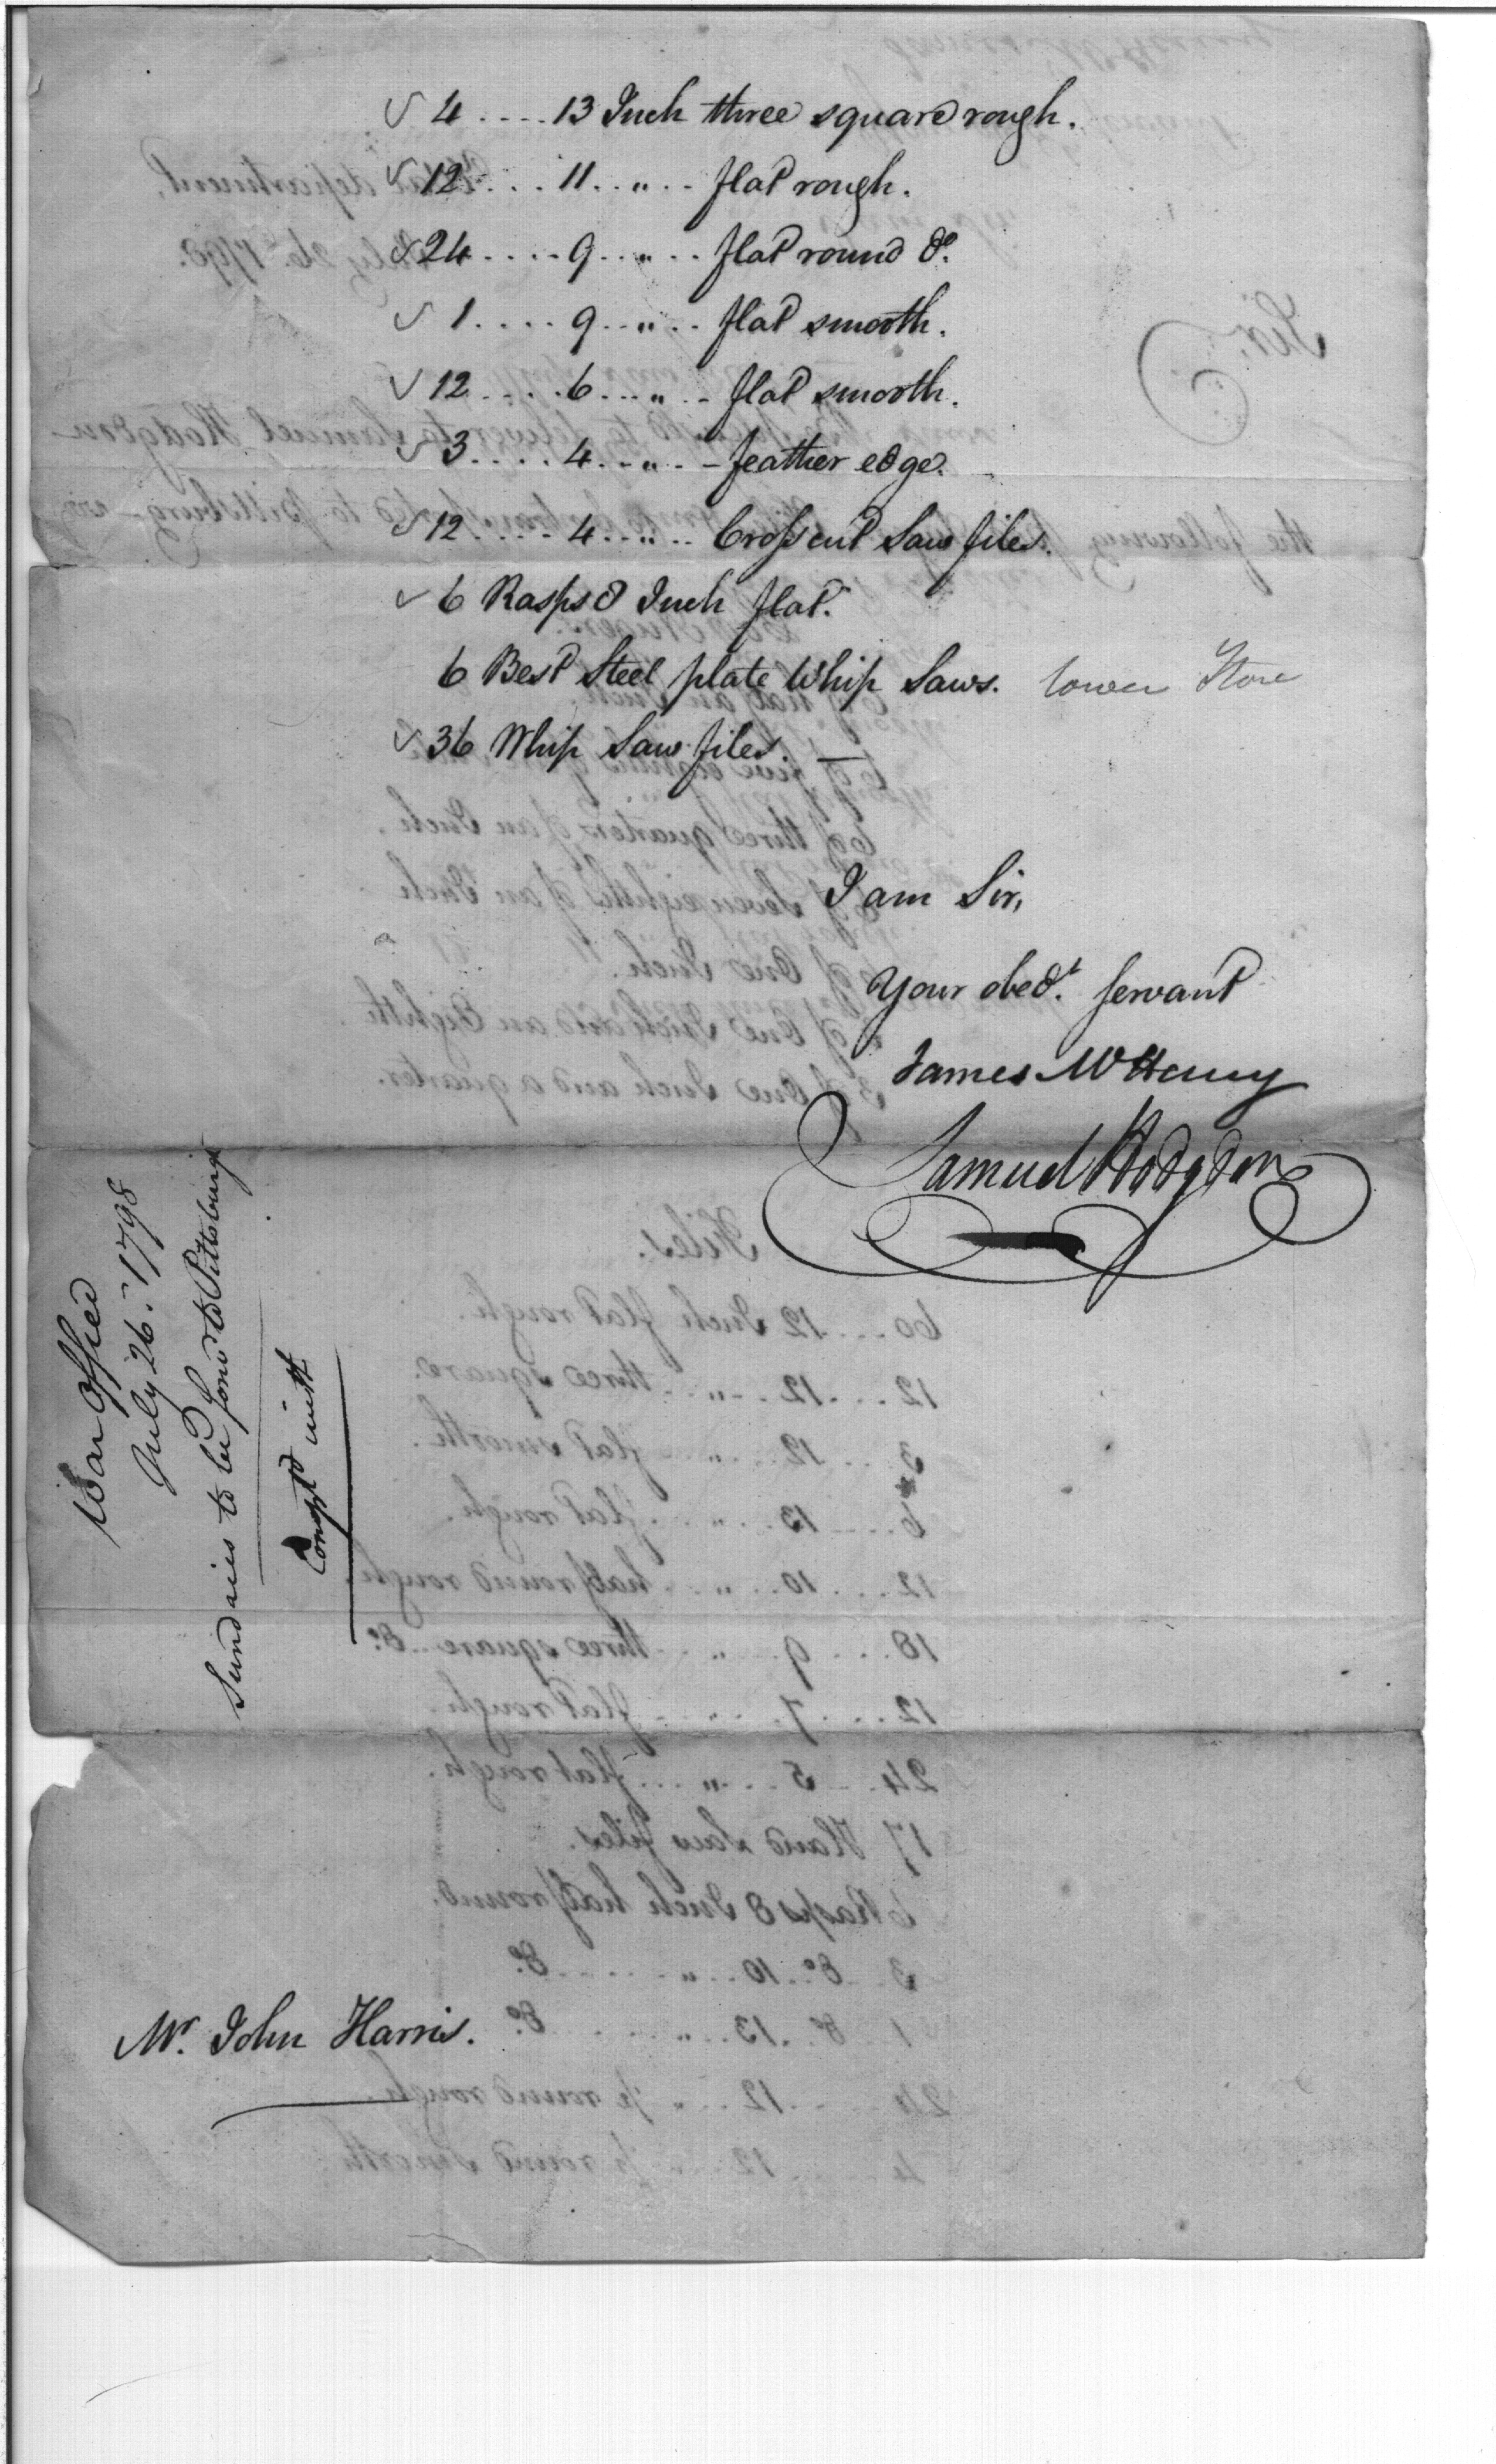 ✓ 4 .... 13 Inch three square rough.
✓ 12 .... 11 .. " .. flat rough.
✓ 24 .... 9 .. " .. flat round do.
✓ 1 .... 9 .. " .. flat smooth.
✓ 12 .... 6 .. " .. flat smooth.
✓ 3 .... 4 .. " .. feather edge.
✓ 12 .... 4 .. " .. Crosscut Saw files.
✓ 6 Rasps 8 Inch flat.
6 Best Steel plate Whip Saws. lower Store
✓ 36 Whip Saw files. —
I am Sir,
Your obedt. servant
James McHenry
Samuel Hodgdon
War Office
July 26. 1798
Sundries to be forwd. to Pittsburgh
Compd with
Mr. John Harris.